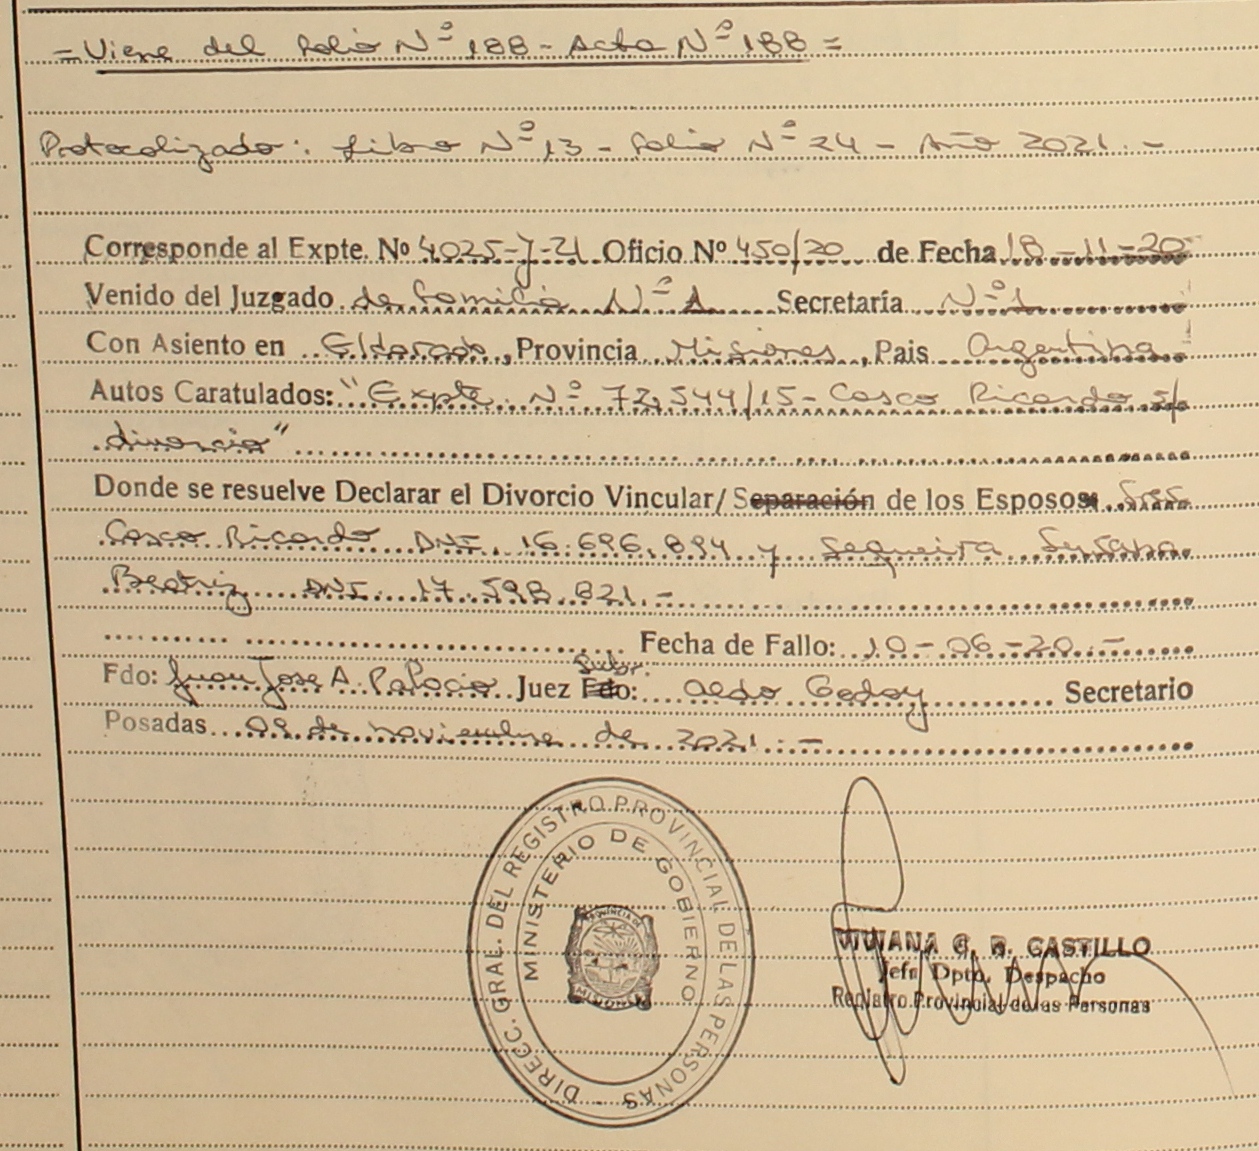 = Viene del folio Nº 188 - Acta Nº 188 =
Protocolizado: Libro Nº 13 - folio Nº 24 - Año 2021.-
Corresponde al Expte. Nº 4025-J-21 Oficio Nº 450/20 de Fecha 18-11-20
Venido del Juzgado de familia Nº 1 Secretaría Nº 1
Con Asiento en Eldorado, Provincia Misiones, Pais Argentina
Autos Caratulados: "Expte. Nº 72,544/15- Casco Ricardo s/
divorcio"
Donde se resuelve Declarar el Divorcio Vincular/Separación de los Esposos Sres
Casco Ricardo DNI. 16.696.894 y Sequeira Susana
Beatriz DNI 17.598.821.-
Fecha de Fallo: 10-06-20.-
Fdo: Juan Jose A. Palacio Juez Fdo: Subr. Aldo Godoy Secretario
Posadas 09 de noviembre de 2021.-
DIRECC. GRAL. DEL REGISTRO PROVINCIAL DE LAS PERSONAS
MINISTERIO DE GOBIERNO
PROVINCIA DE
MISIONES
VIVIANA G. R. CASTILLO
Jefe Dpto. Despacho
Registro Provincial de las Personas